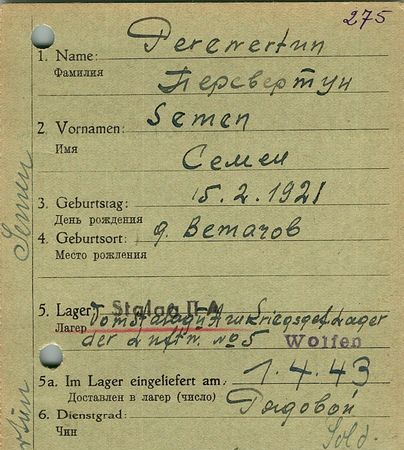 275
1. Name: Perewertun
Фамилия Перевертун
2. Vornamen: Semen
Имя
Семен
3. Geburtstag: 15.2.1921
День рождения
4. Geburtsort: д. Ветачов
Место рождения
5. Lager: Stalag II A
Лагер vom Stalag II A in Kriegsgef. Lager
der Luftw. No 5 Wolfen
5a. Im Lager eingeliefert am: 1.4.43
Доставлен в лагер (число)
6. Dienstgrad: Рядовой
Чин
Sold.
Semen